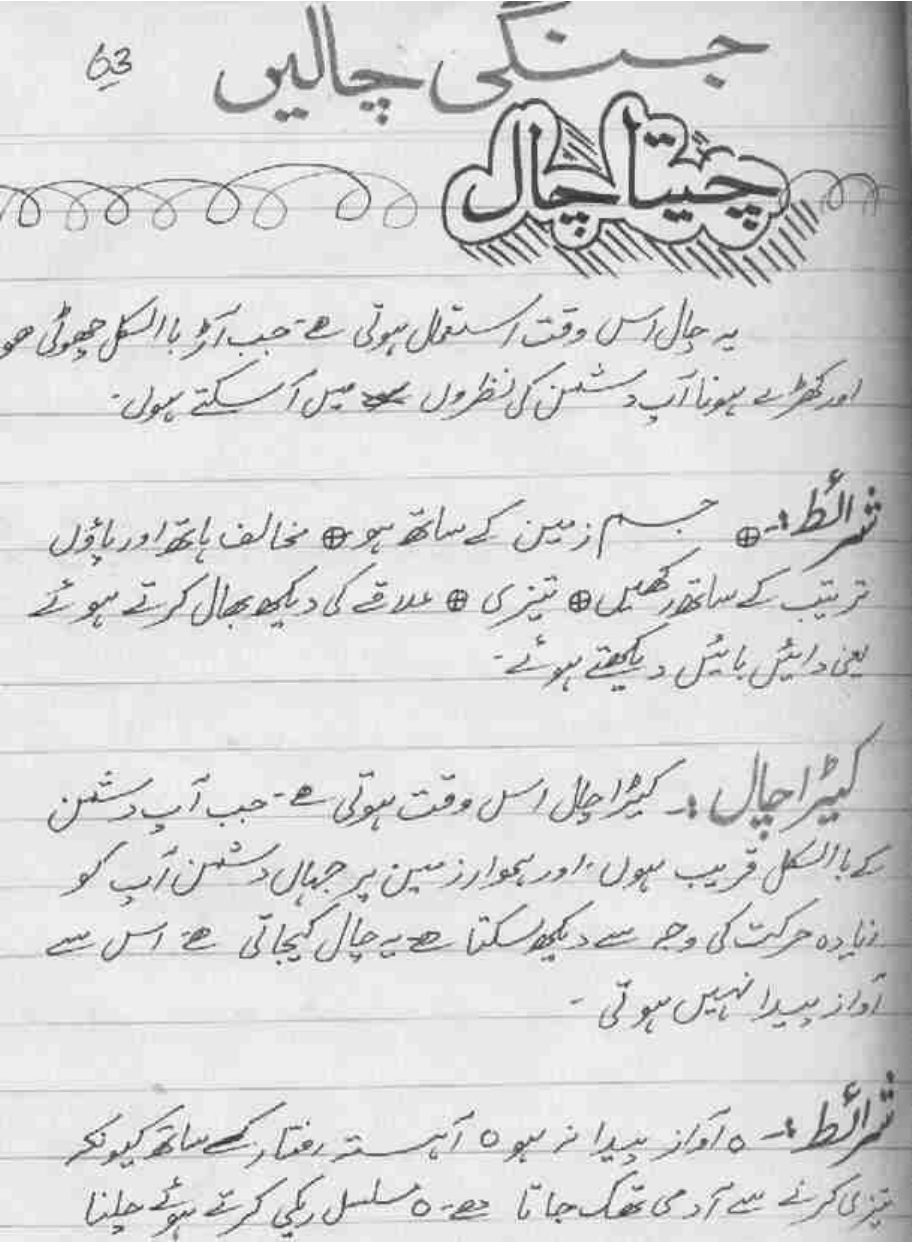 63
جنگی چالیں
چیتا چال
یہ چال اس وقت استعمال ہوتی ھے۔ جب آڑ باالکل چھوٹی ھو
اور کھڑے ہونا آپ دشمن کی نظروں میں آ سکتے ہوں۔
شرائط :- ⊕ جسم زمین کے ساتھ ہو ⊕ مخالف ہاتھ اور پاؤں
ترتیب کے ساتھ رکھیں ⊕ تیزی ⊕ علاقے کی دیکھ بھال کرتے ہوئے
یعنی دائیں بائیں دیکھتے ہوئے۔
کیڑا چال :- کیڑا چال اس وقت ہوتی ھے۔ جب آپ دشمن
کے باالکل قریب ہوں، اور ہموار زمین پر جہاں دشمن آپ کو
زیادہ حرکت کی وجہ سے دیکھ سکتا ھے یہ چال کیجاتی ھے۔ اس سے
آواز پیدا نہیں ہوتی ۔
شرائط :- ٥ آواز پیدا نہ ہو ٥ آہستہ رفتار کے ساتھ کیونکہ
تیزی کرنے سے آدمی تھک جاتا ھے۔ ٥ مسلسل ریکی کرتے ہوئے چلنا